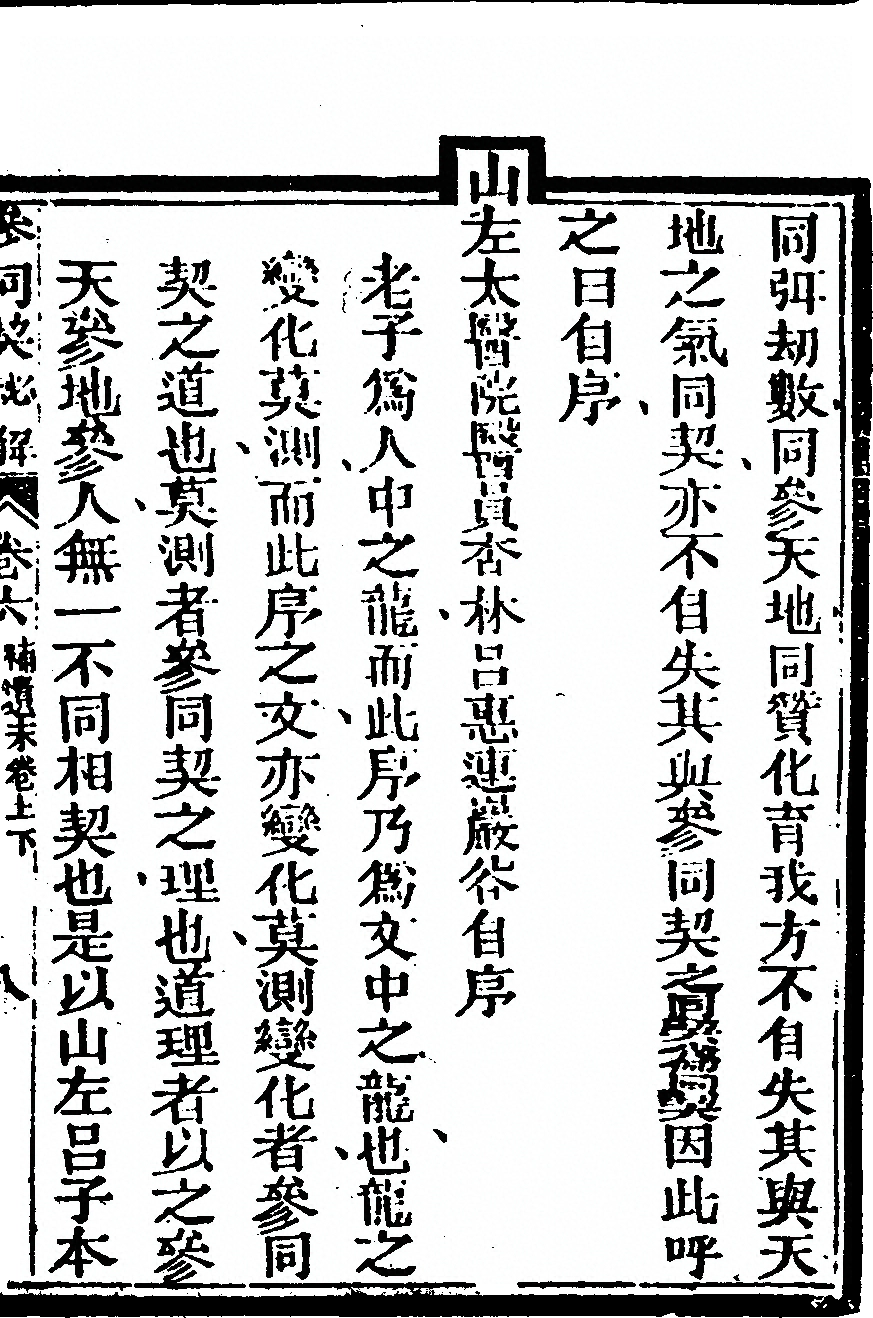 同弭劫數同參天地同贊化育我方不自失其與天
地之氣同契亦不自失其與參同契之同契稱同契因此呼
之曰自序
山左太醫院醫員杏林呂惠連嚴谷自序
老子爲人中之龍而此序乃爲文中之龍也龍之
變化莫測而此序之文亦變化莫測變化者參同
契之道也莫測者參同契之理也道理者以之參
天參地參人無一不同相契也是以山左呂子本
參同契 解 卷六 補遺末卷上下 八